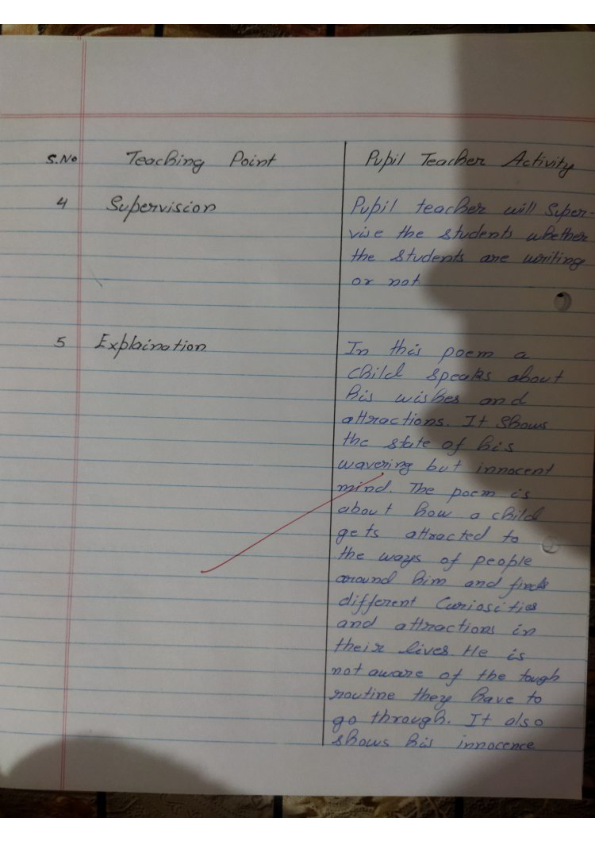 S.No Teaching Point Pupil Teacher Activity
4 Supervision Pupil teacher will Super-
vise the students whether
the students are writing
or not
5 Explaination In this poem a
child speaks about
his wishes and
attractions. It shows
the state of his
wavering but innocent
mind. The poem is
about how a child
gets attracted to
the ways of people
around him and finds
different Curiosities
and attractions in
their lives. He is
not aware of the tough
routine they have to
go through. It also
shows his innocence